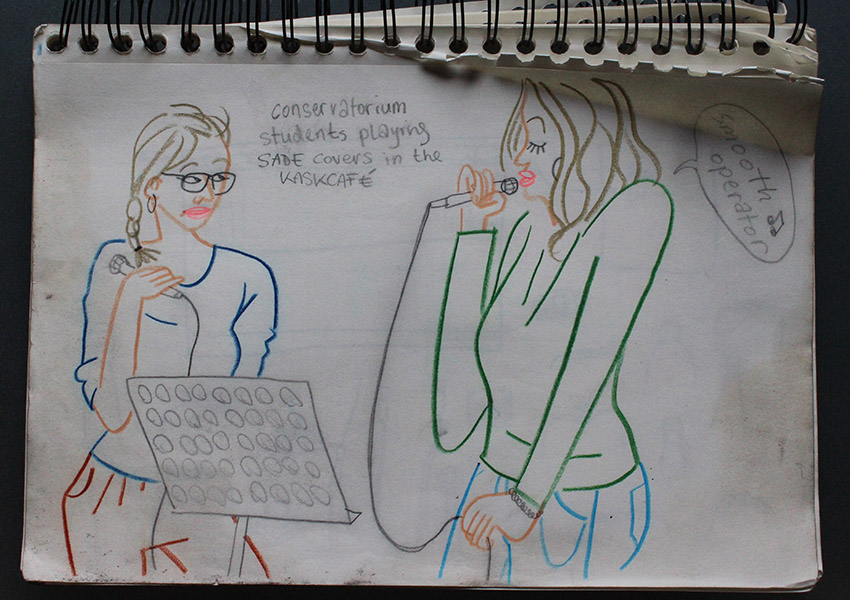 conservatorium
students playing
SADE covers in the
KASKCAFÉ
smooth
operator